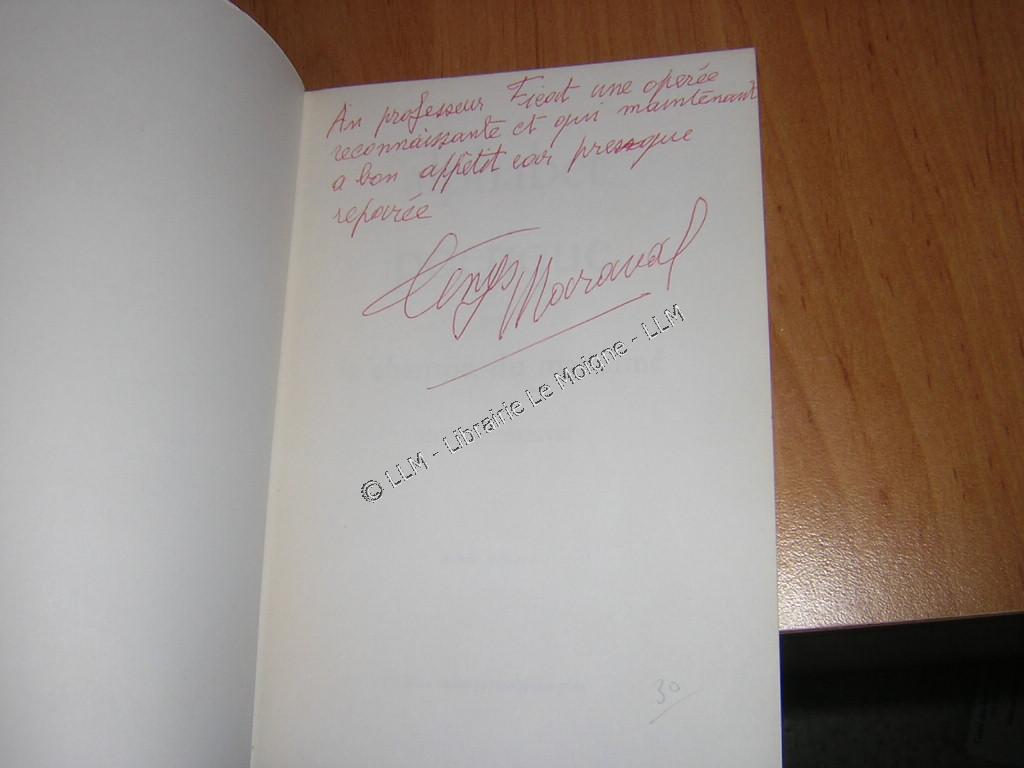 Au professeur Ficat une operée
reconnaissante et qui maintenant
a bon appétit car presque
reparée
Maraval
© LLM - Librairie Le Moigne - LLM
30